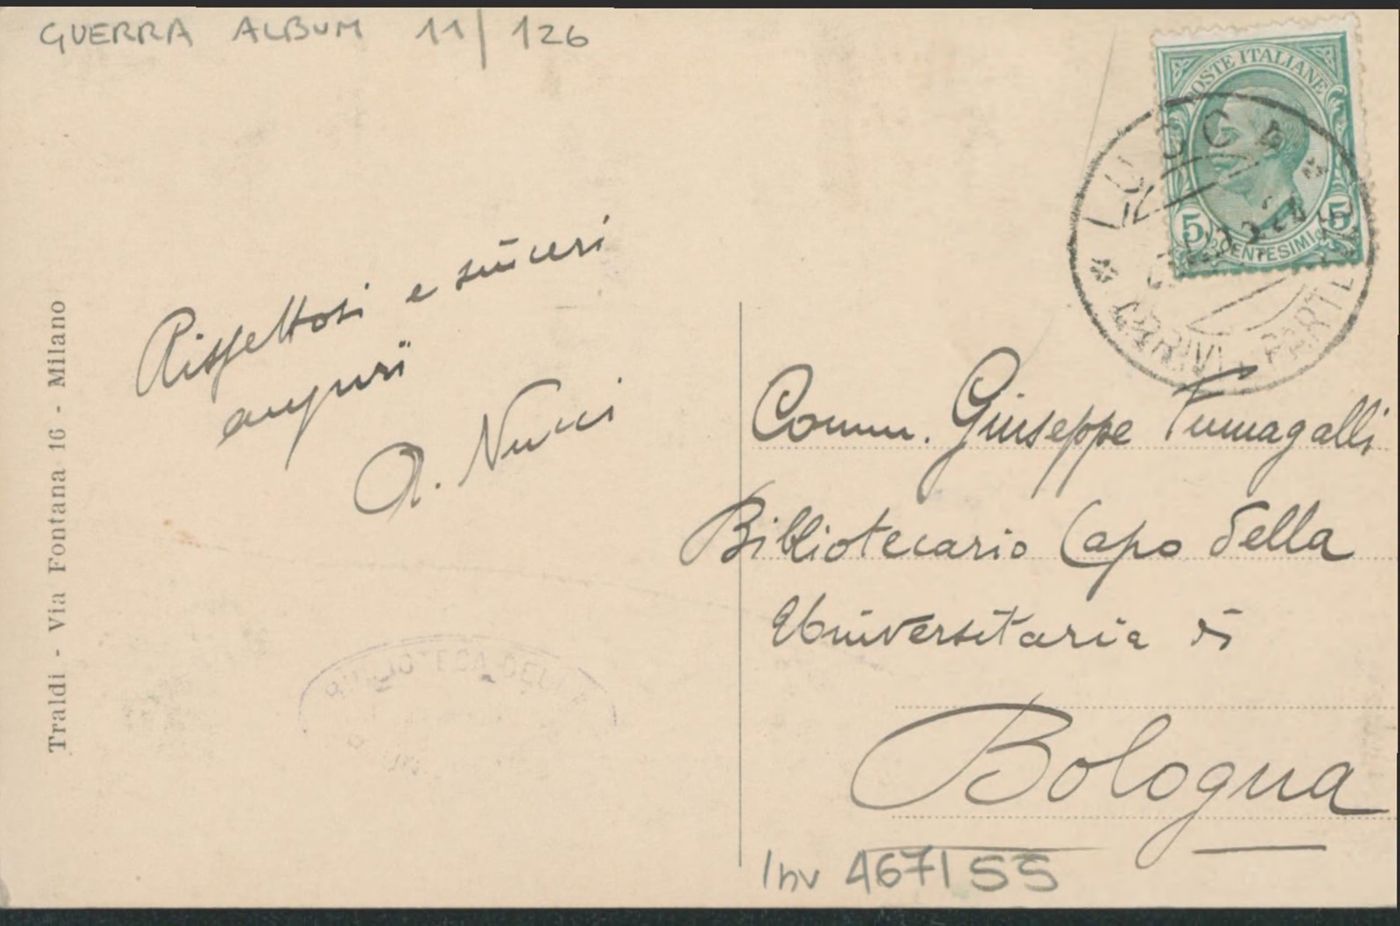 GUERRA ALBUM 11/126
POSTE ITALIANE
5 CENTESIMI 5
ARRIVI PARTENZE
Rispettosi e sinceri
auguri
A. Nucci
Comm. Giuseppe Fumagalli
Bibliotecario Capo della
Universitaria di
Bologna
Inv 467155
Traldi - Via Fontana 16 - Milano